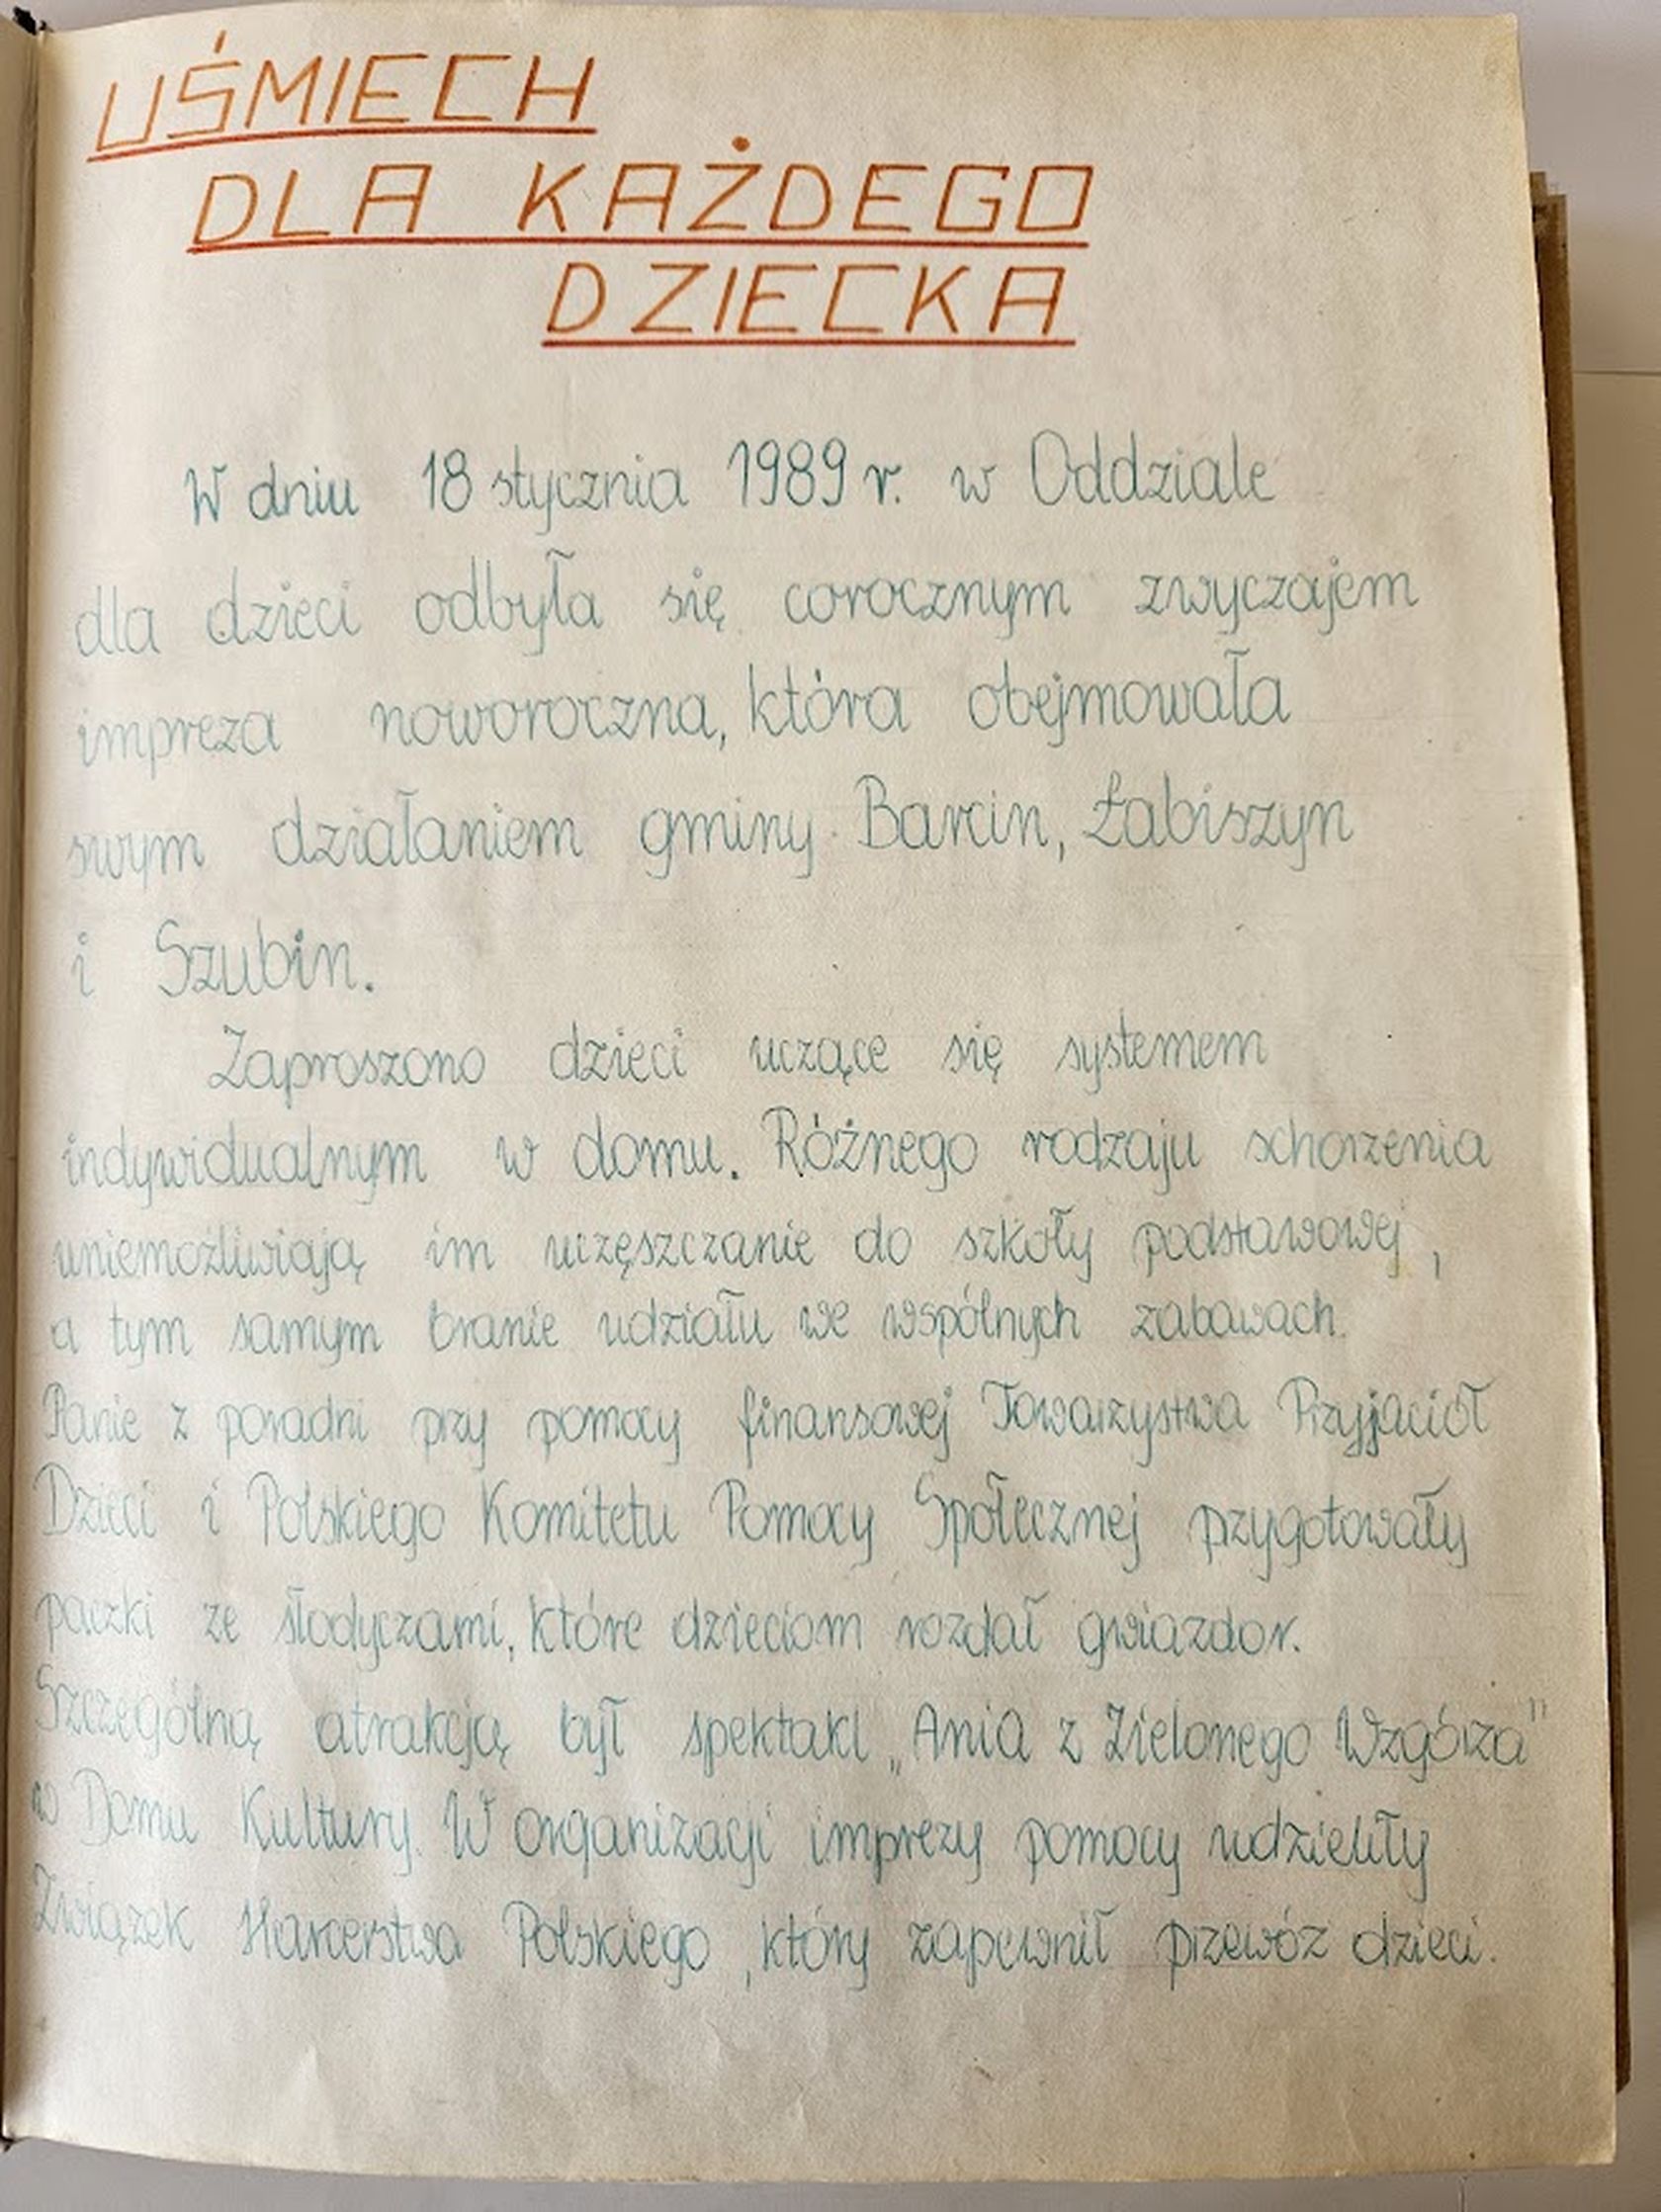 UŚMIECH
DLA KAŻDEGO
DZIECKA
W dniu 18 stycznia 1989 r. w Oddziale
dla dzieci odbyła się corocznym zwyczajem
impreza noworoczna, która obejmowała
swym działaniem gminy Barcin, Łabiszyn
i Szubin.
Zaproszono dzieci uczące się systemem
indywidualnym w domu. Różnego rodzaju schorzenia
uniemożliwiają im uczęszczanie do szkoły podstawowej,
a tym samym branie udziału we wspólnych zabawach.
Panie z poradni przy pomocy finansowej Towarzystwa Przyjaciół
Dzieci i Polskiego Komitetu Pomocy Społecznej przygotowały
paczki ze słodyczami, które dzieciom rozdał gwiazdor.
Szczególną atrakcją był spektakl „Ania z Zielonego Wzgórza"
w Domu Kultury. W organizacji imprezy pomocy udzieliły
Związek Harcerstwa Polskiego, który zapewnił przewóz dzieci.